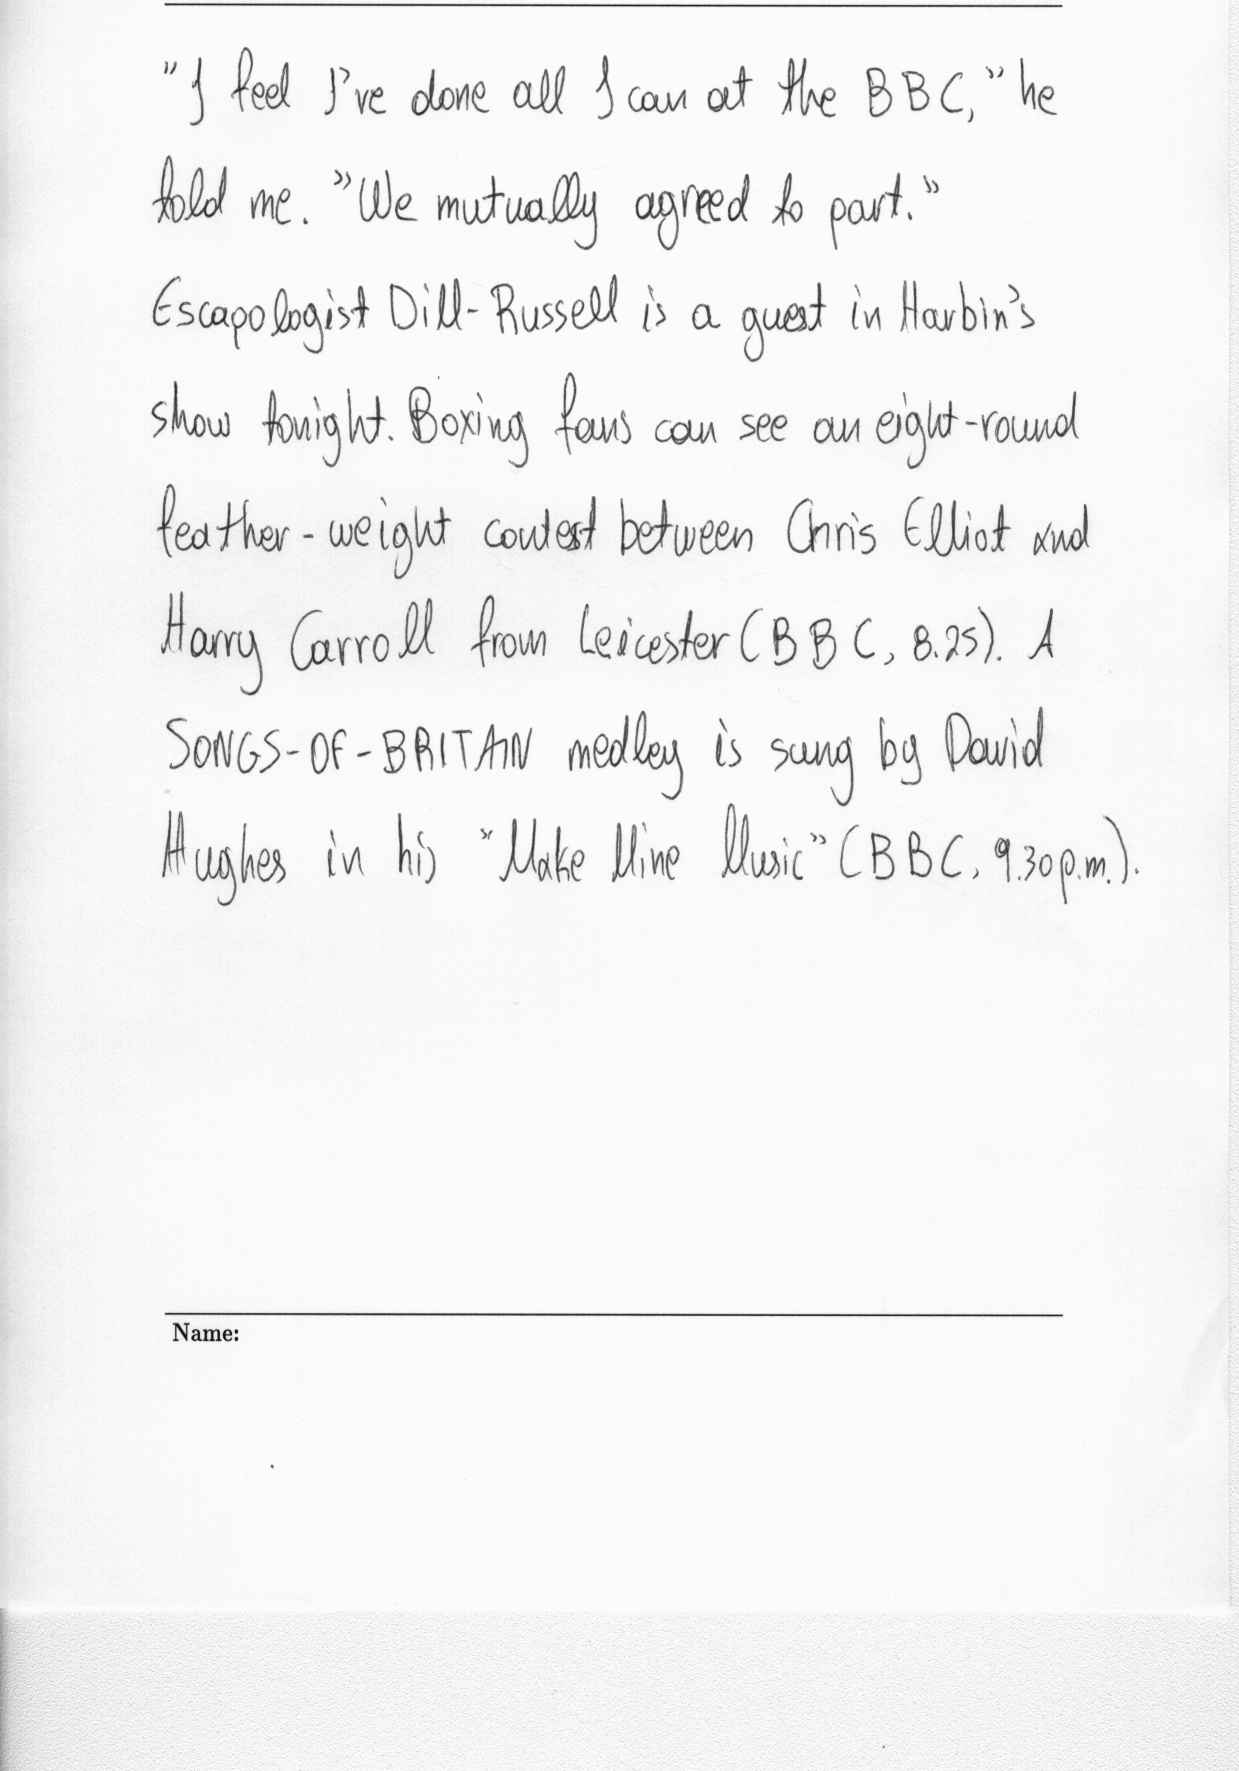 "I feel I've done all I can at the B B C," he
told me. "We mutually agreed to part."
Escapologist Dill-Russell is a guest in Harbin's
show tonight. Boxing fans can see an eight-round
feather-weight contest between Chris Elliot and
Harry Carroll from Leicester (B B C, 8.25). A
SONGS-OF-BRITAIN medley is sung by David
Hughes in his "Make Mine Music" (B B C, 9.30 p.m.).
Name: